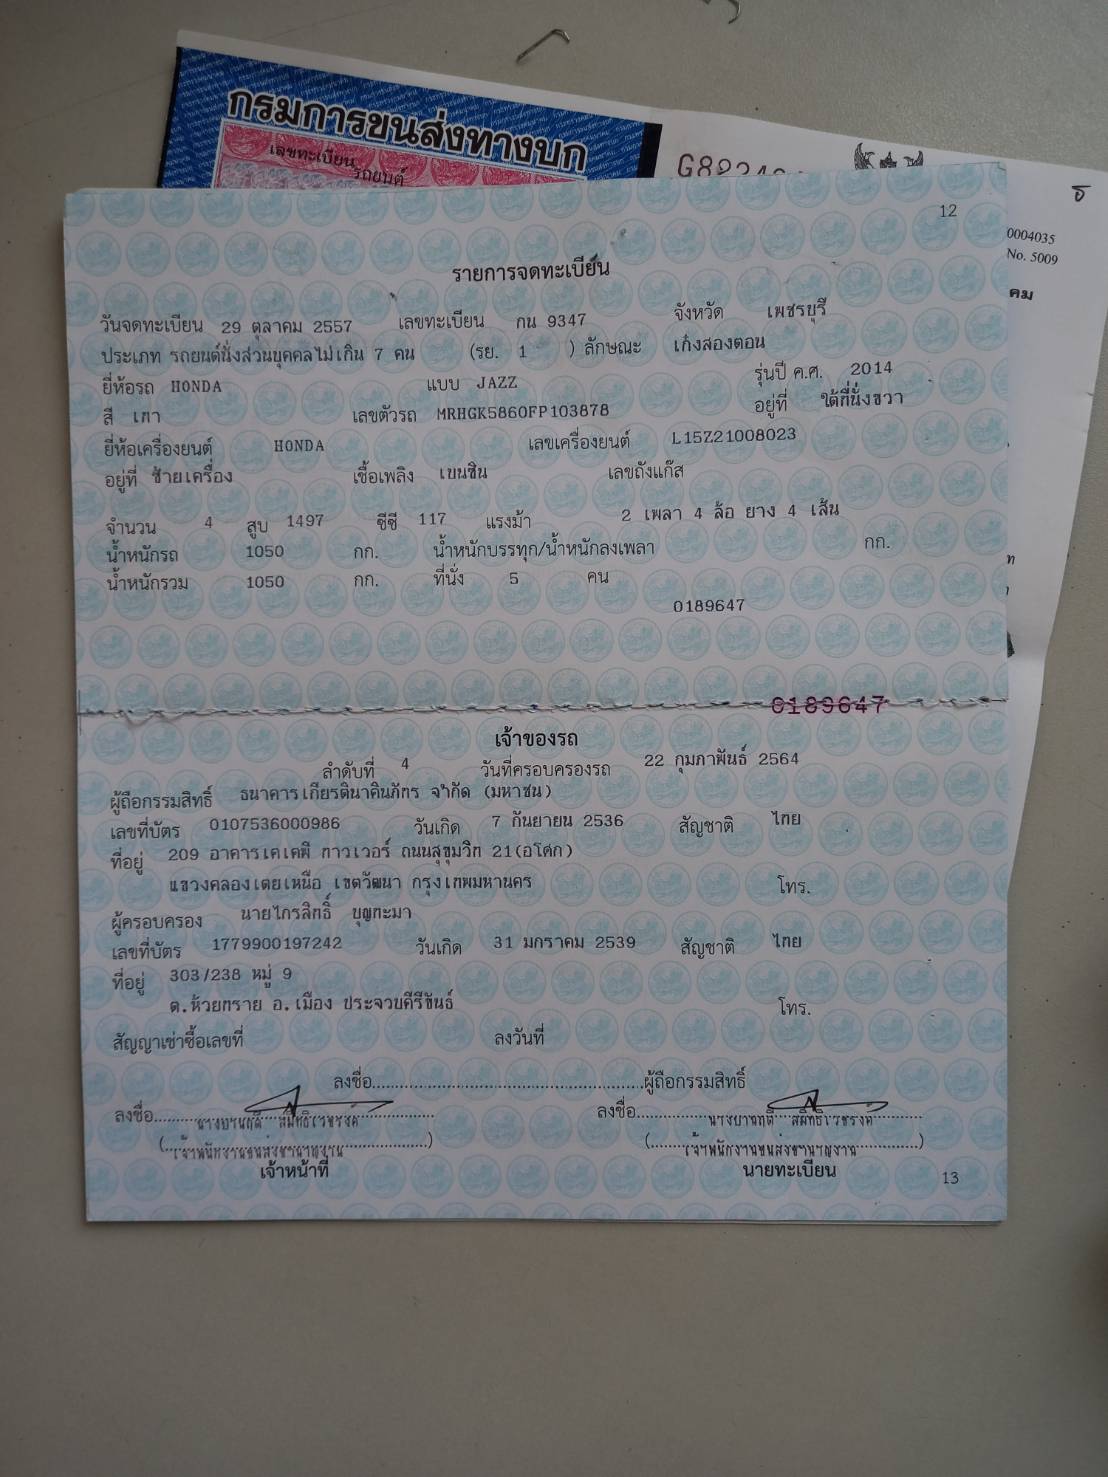 กรมการขนส่งทางบก
เลขทะเบียน
รถยนต์
0004035
No. 5009
คม
12
รายการจดทะเบียน
วันจดทะเบียน 29 ตุลาคม 2557 เลขทะเบียน กน 9347 จังหวัด เพชรบุรี
ประเภท รถยนต์นั่งส่วนบุคคลไม่เกิน 7 คน (รย. 1 ) ลักษณะ เก๋งสองตอน
ยี่ห้อรถ HONDA แบบ JAZZ รุ่นปี ค.ศ. 2014
สี เทา เลขตัวรถ MRHGK5860FP103878 อยู่ที่ ใต้ที่นั่งขวา
ยี่ห้อเครื่องยนต์ HONDA เลขเครื่องยนต์ L15Z21008023
อยู่ที่ ซ้ายเครื่อง เชื้อเพลิง เบนซิน เลขถังแก๊ส
จำนวน 4 สูบ 1497 ซีซี 117 แรงม้า 2 เพลา 4 ล้อ ยาง 4 เส้น
น้ำหนักรถ 1050 กก. น้ำหนักบรรทุก/น้ำหนักลงเพลา กก.
น้ำหนักรวม 1050 กก. ที่นั่ง 5 คน
0189647
0189647
เจ้าของรถ
ลำดับที่ 4 วันที่ครอบครองรถ 22 กุมภาพันธ์ 2564
ผู้ถือกรรมสิทธิ์ ธนาคารเกียรตินาคินภัทร จำกัด (มหาชน)
เลขที่บัตร 0107536000986 วันเกิด 7 กันยายน 2536 สัญชาติ ไทย
ที่อยู่ 209 อาคารเคเคพี ทาวเวอร์ ถนนสุขุมวิท 21(อโศก)
แขวงคลองเตยเหนือ เขตวัฒนา กรุงเทพมหานคร โทร.
ผู้ครอบครอง นายไกรสิทธิ์ บุญทะมา
เลขที่บัตร 1779900197242 วันเกิด 31 มกราคม 2539 สัญชาติ ไทย
ที่อยู่ 303/238 หมู่ 9
ต.ห้วยทราย อ.เมือง ประจวบคีรีขันธ์ โทร.
สัญญาเช่าซื้อเลขที่ ลงวันที่
ลงชื่อ..........ผู้ถือกรรมสิทธิ์
ลงชื่อ.......... ลงชื่อ..........
(เจ้าพนักงานขนส่งชำนาญงาน) (เจ้าพนักงานขนส่งชำนาญงาน)
เจ้าหน้าที่ นายทะเบียน
13